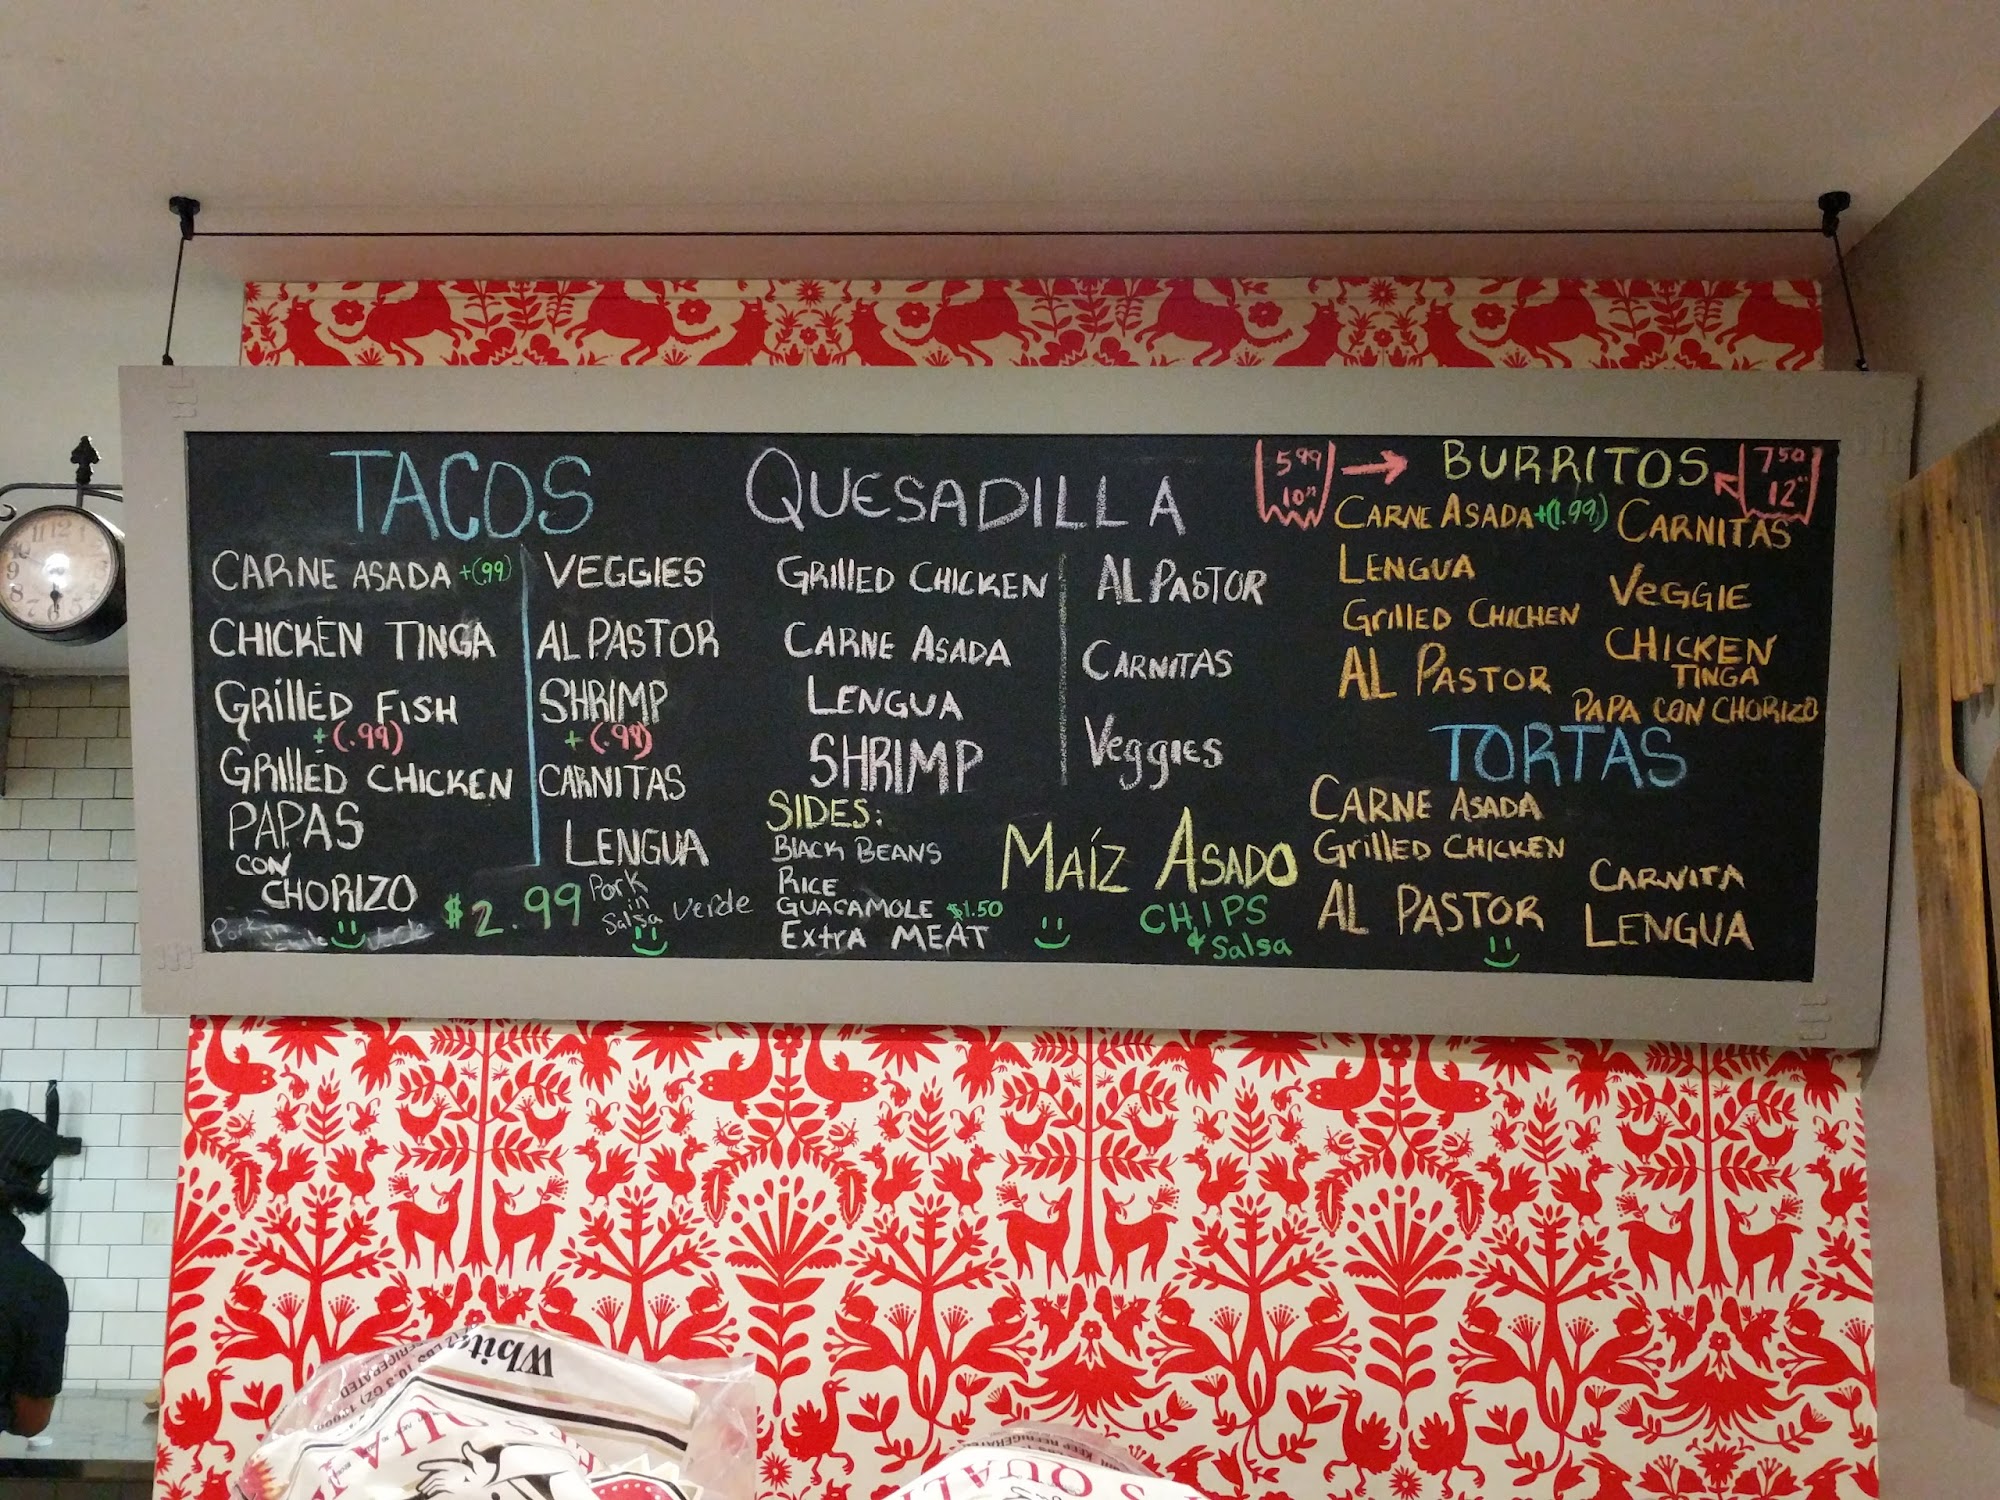 TACOS
CARNE ASADA +(.99)
CHICKEN TINGA
GRILLED FISH
+(.99)
GRILLED CHICKEN
PAPAS
CON
CHORIZO
VEGGIES
AL PASTOR
SHRIMP
+(.99)
CARNITAS
LENGUA
Pork
in
Salsa Verde
$2.99
QUESADILLA
GRILLED CHICKEN
CARNE ASADA
LENGUA
SHRIMP
AL PASTOR
CARNITAS
Veggies
SIDES:
BLACK BEANS
RICE
GUACAMOLE $1.50
EXtRA MEAT
MAÍZ ASADO
CHIPS
& Salsa
5.99
10"
→ BURRITOS
7.50
12"
CARNE ASADA +(1.99)
LENGUA
GRILLED CHICHEN
AL PASTOR
CARNITAS
VEGGIE
CHICKEN
TINGA
PAPA CON CHORIZO
TORTAS
CARNE ASADA
GRILLED CHICKEN
AL PASTOR
CARNITA
LENGUA
White